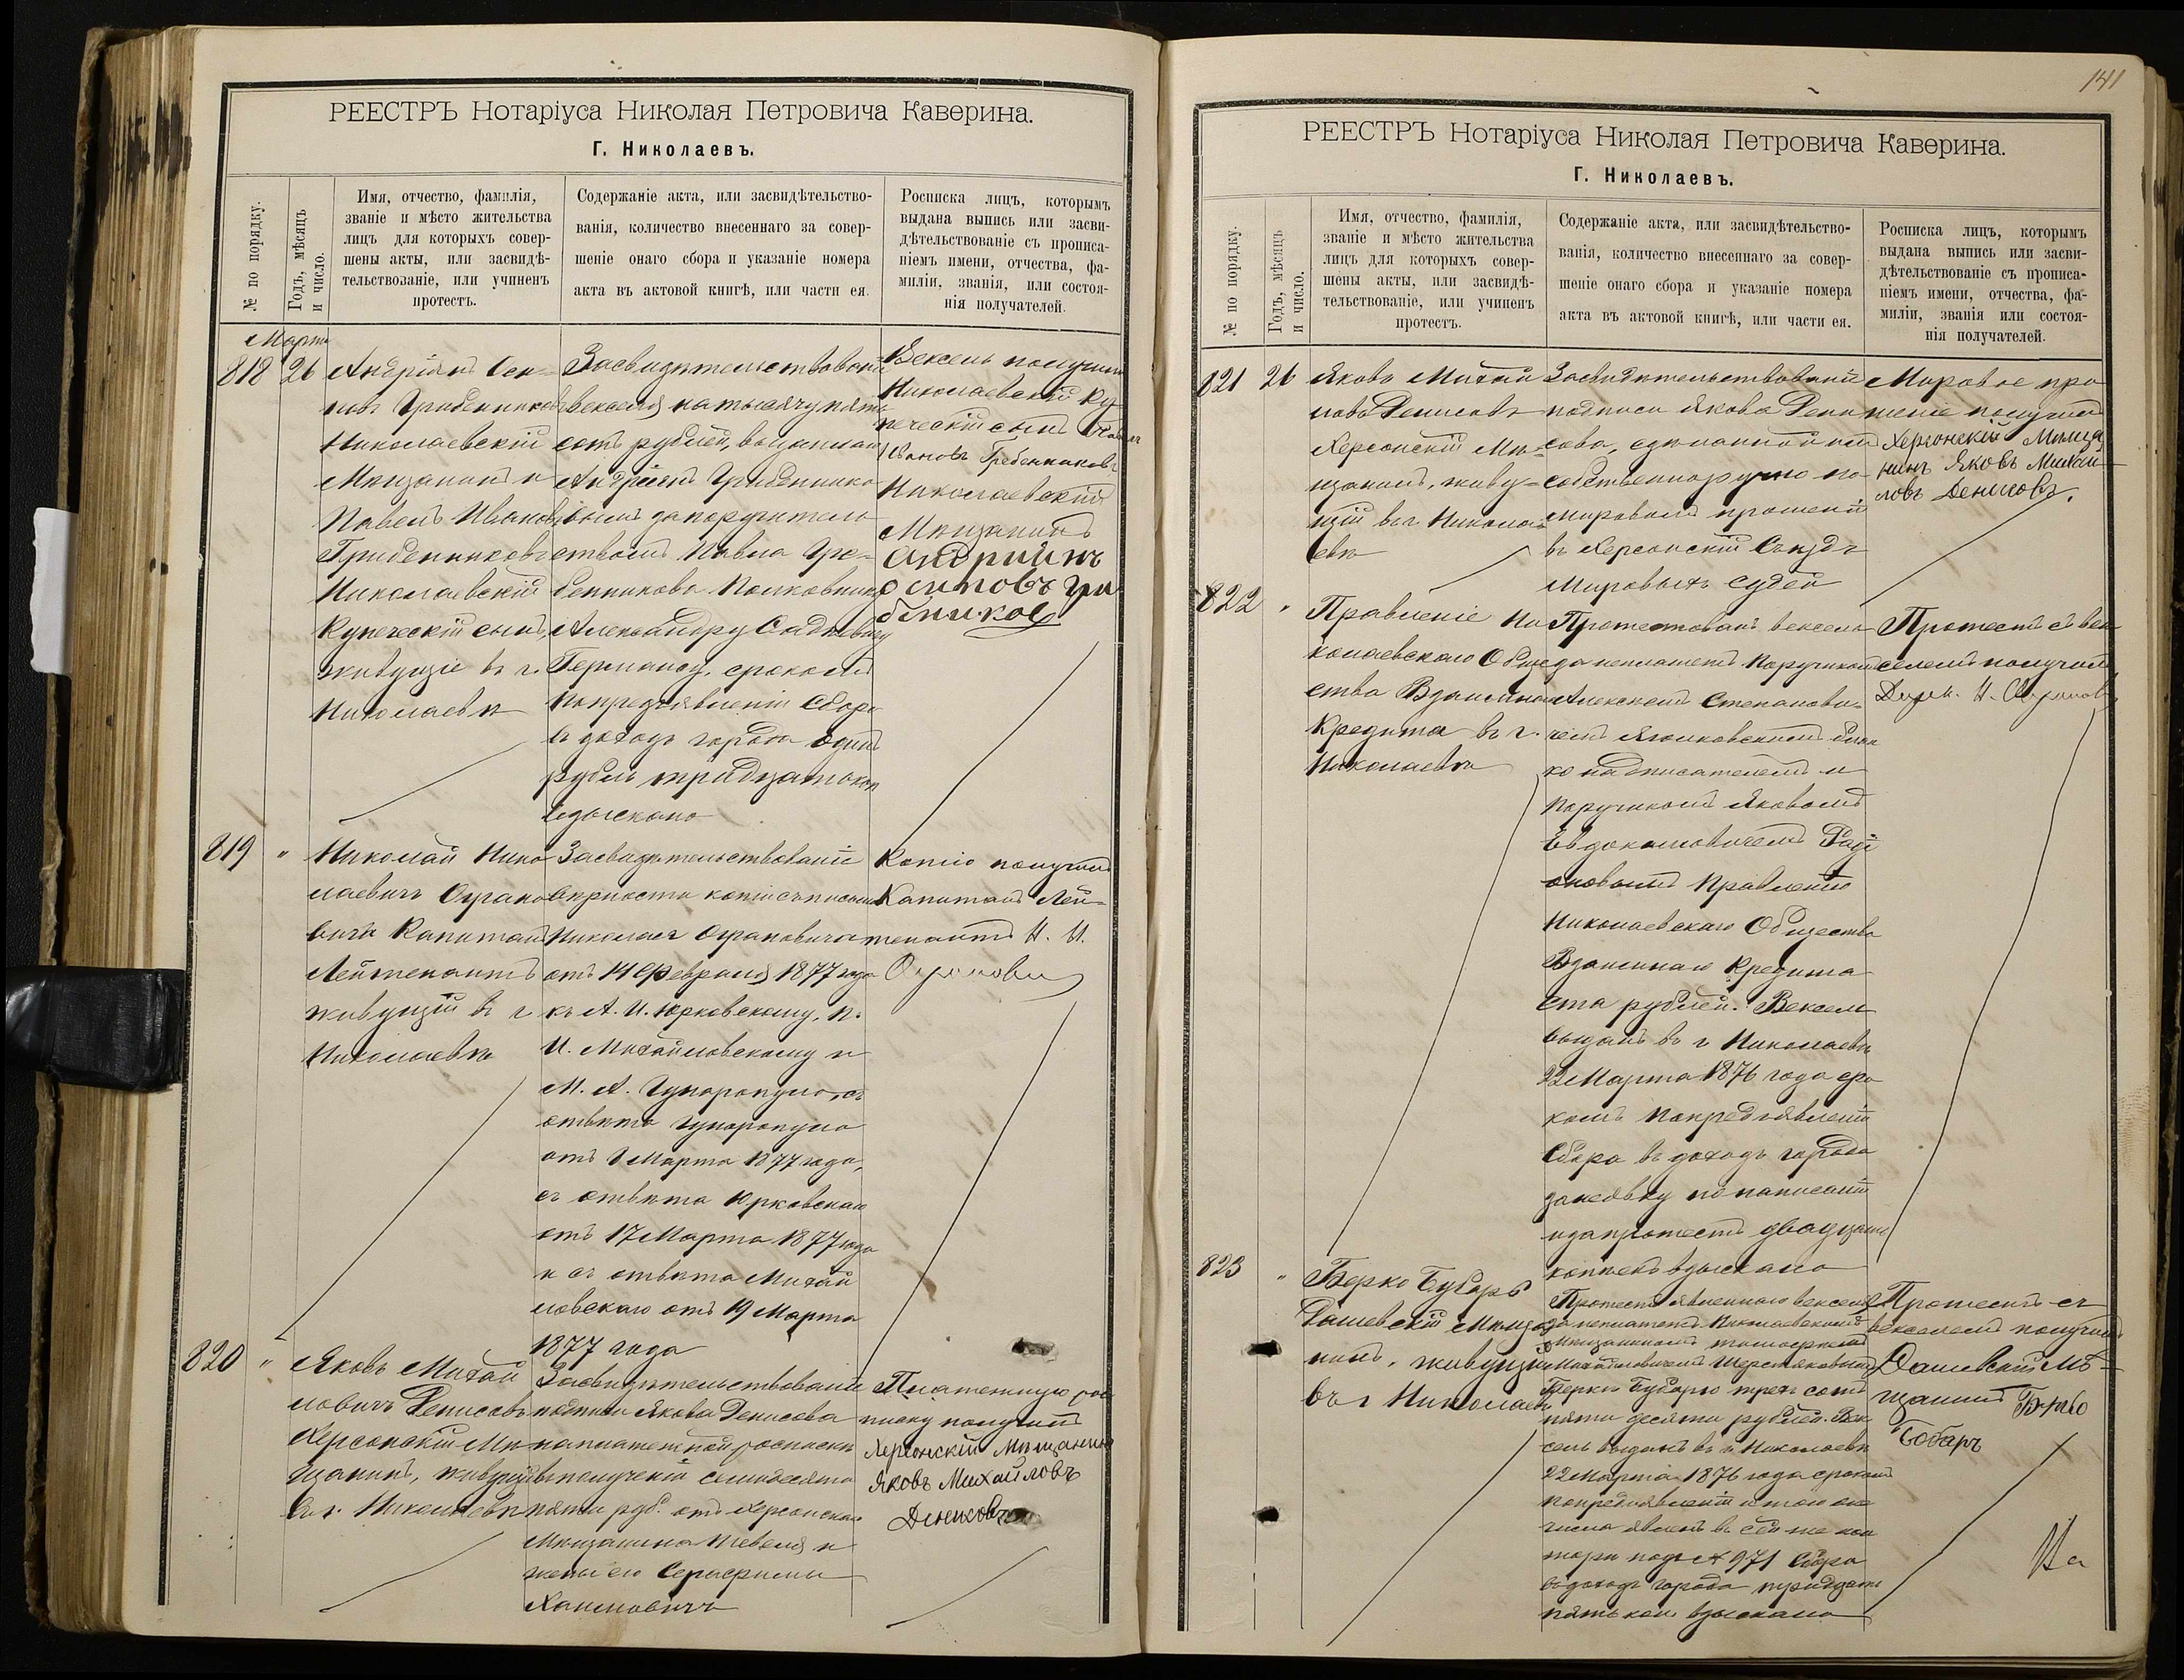 РЕЕСТРЪ Нотаріуса Николая Петровича Каверина.
Г. Николаевъ.
№ по порядку.
Годъ, мѣсяцъ
и число.
Имя, отчество, фамилія,
званіе и мѣсто жительства
лицъ для которыхъ совер-
шены акты, или засвидѣ-
тельствованіе, или учиненъ
протестъ.
Содержаніе акта, или засвидѣтельство-
ванія, количество внесеннаго за совер-
шеніе онаго сбора и указаніе номера
акта въ актовой книгѣ, или части ея.
Росписка лицъ, которымъ
выдана выпись или засви-
дѣтельствованіе съ прописа-
ніемъ имени, отчества, фа-
миліи, званія, или состоя-
нія получателей.
Марта
818 26
Андріянъ
Николаевскій
Мѣщанинъ и
Павелъ Ивановъ
Гребенниковъ
Николаевскій
Купеческій сынъ,
живущіе въ г.
Николаевѣ
Засвидѣтельствованіе
векселя на тысячу пять
сотъ рублей, выданнаго
Андріяномъ
за поручитель
ствомъ Павла Гре-
бенникова Полковнику
Александру
Герману, срокомъ
по предъявленіи Сбора
въ доходъ города одинъ
рубль тридцать коп
взыскано
Вексель получили
Николаевскій Ку
печескій сынъ Павелъ
Ивановъ Гребенниковъ
Николаевскій
Мѣщанинъ
Андрийнъ
819 "
Николай Нико
лаевичъ
Капитанъ
Лейтенантъ
живущій въ г.
Николаевѣ
Засвидѣтельствованіе
вѣрности копіи съ письма
Николая
отъ 14 Февраля 1877 года
къ А. И. Юрковскому, П.
И. Михайловскому и
М. А.
отвѣта
отъ 8 Марта 1877 года,
съ отвѣта Юрковскаго
отъ 17 Марта 1877 года
и съ отвѣта Михай
ловскаго отъ 19 Марта
1877 года
Копію получилъ
Капитанъ Лей-
тенантъ Н. Н.
820 "
Яковъ Михай
ловичъ Денисовъ
Херсонскій Мѣ
щанинъ, живущій
въ г. Николаевѣ
Засвидѣтельствованіе
подписи Якова Денисова
на платежной роспискѣ
въ полученіи семидесяти
пяти руб. отъ Херсонскаго
Мѣщанина и
жены его Серафимы
Платежную рос
писку получилъ
Херсонскій Мѣщанинъ
Яковъ Михайловъ
Денисовъ
141
РЕЕСТРЪ Нотаріуса Николая Петровича Каверина.
Г. Николаевъ.
№ по порядку.
Годъ, мѣсяцъ
и число.
Имя, отчество, фамилія,
званіе и мѣсто жительства
лицъ для которыхъ совер-
шены акты, или засвидѣ-
тельствованіе, или учиненъ
протестъ.
Содержаніе акта, или засвидѣтельство-
ванія, количество внесеннаго за совер-
шеніе онаго сбора и указаніе номера
акта въ актовой книгѣ, или части ея.
Росписка лицъ, которымъ
выдана выпись или засви-
дѣтельствованіе съ прописа-
ніемъ имени, отчества, фа-
миліи, званія или состоя-
нія получателей.
821 26
Яковъ Михай
ловъ Денисовъ
Херсонскій Мѣ-
щанинъ, живу-
щій въ г. Никола-
евѣ
Засвидѣтельствованіе
подписи Якова Дени
сова, сдѣланной имъ
собственноручно на
мировомъ прошеніи
въ Херсонскій Съѣздъ
Мировыхъ Судей
Мировое про
шеніе получилъ
Херсонскій Мѣща
нинъ Яковъ Михай-
ловъ Денисовъ.
822 "
Правленіе Ни
колаевскаго Обще
ства Взаимнаго
Кредита въ г.
Николаевѣ
Протестованъ вексель
за неплатежъ Поручикомъ
Алексѣемъ Степанови-
чемъ
надписателемъ и
Поручикомъ Яковомъ
Евдокимовичемъ
Правленію
Николаевскаго Общества
Взаимнаго Кредита
ста рублей. Вексель
выданъ въ г Николаевѣ
22 Марта 1876 года сро
комъ по предъявленіи
Сбора въ доходъ города
за явку по написаніи
и за протестъ двадцать
копѣекъ взыскано
Протестъ съ век
селемъ получилъ
823 "
Берко Бубаръ
Дашевскій Мѣща
нинъ, живущій
въ г Николаевѣ
Протестъ явленнаго векселя
за неплатежъ Николаевскимъ
Мѣщаниномъ
Берки Бубарю трехъ сотъ
пяти десяти рублей. Век
сель выданъ въ г. Николаевѣ
22 Марта 1876 года срокомъ
по предъявленіи и того же
числа явленъ въ сей же кон
торѣ подъ № 971 Сбора
въ доходъ города тридцать
пять коп взыскано
Протестъ съ
векселемъ получилъ
Дашевскій Мѣ-
щанинъ Берко
Бобарь
На